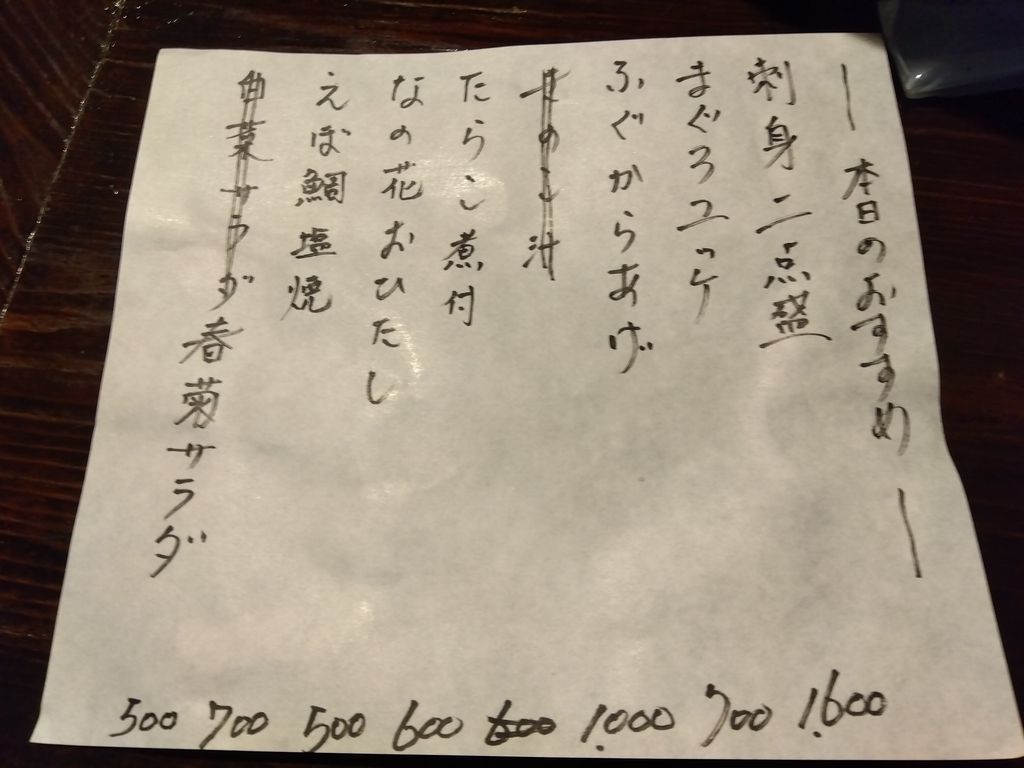 ― 本日のおすすめ ―
刺身二点盛
まぐろユッケ
ふぐからあげ
きのこ汁
たらこ煮付
なの花おひたし
えぼ鯛塩焼
サラダ春菊サラダ
1.600
700
1.000
600
600
500
700
500